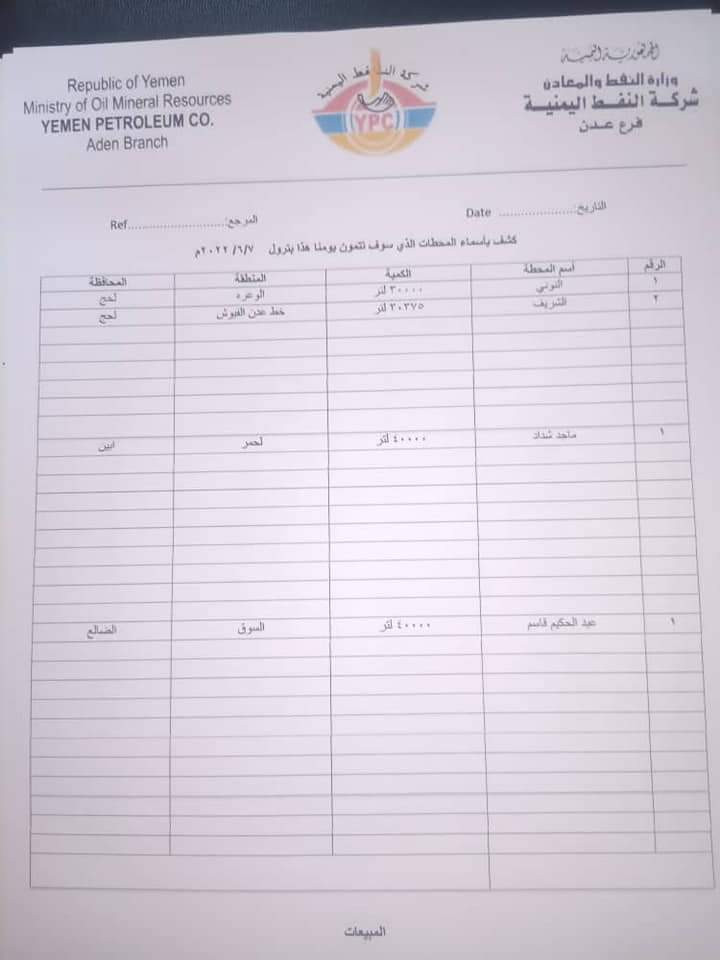 Republic of Yemen
Ministry of Oil Mineral Resources
YEMEN PETROLEUM CO.
Aden Branch
شركة النفط اليمنية
YPC
الجمهورية اليمنية
وزارة النفط والمعادن
شركة النفط اليمنية
فرع عدن
التاريخ:.................... Date
المرجع:.........................Ref
كشف بأسماء المحطات الذي سوف تتمون يومنا هذا بترول ٢٠٢٢/٦/٧م
الرقم أسم المحطة الكمية المنطقة المحافظة
١ النوبي ٣٠٠٠٠ لتر الوعره لحج
٢ الشريف ٣٠٣٧٥ لتر خط عدن الفيوش لحج
١ ماجد شداد ٤٠٠٠٠ لتر لحمر ابين
١ عبد الحكيم قاسم ٤٠٠٠٠ لتر السوق الضالع
المبيعات